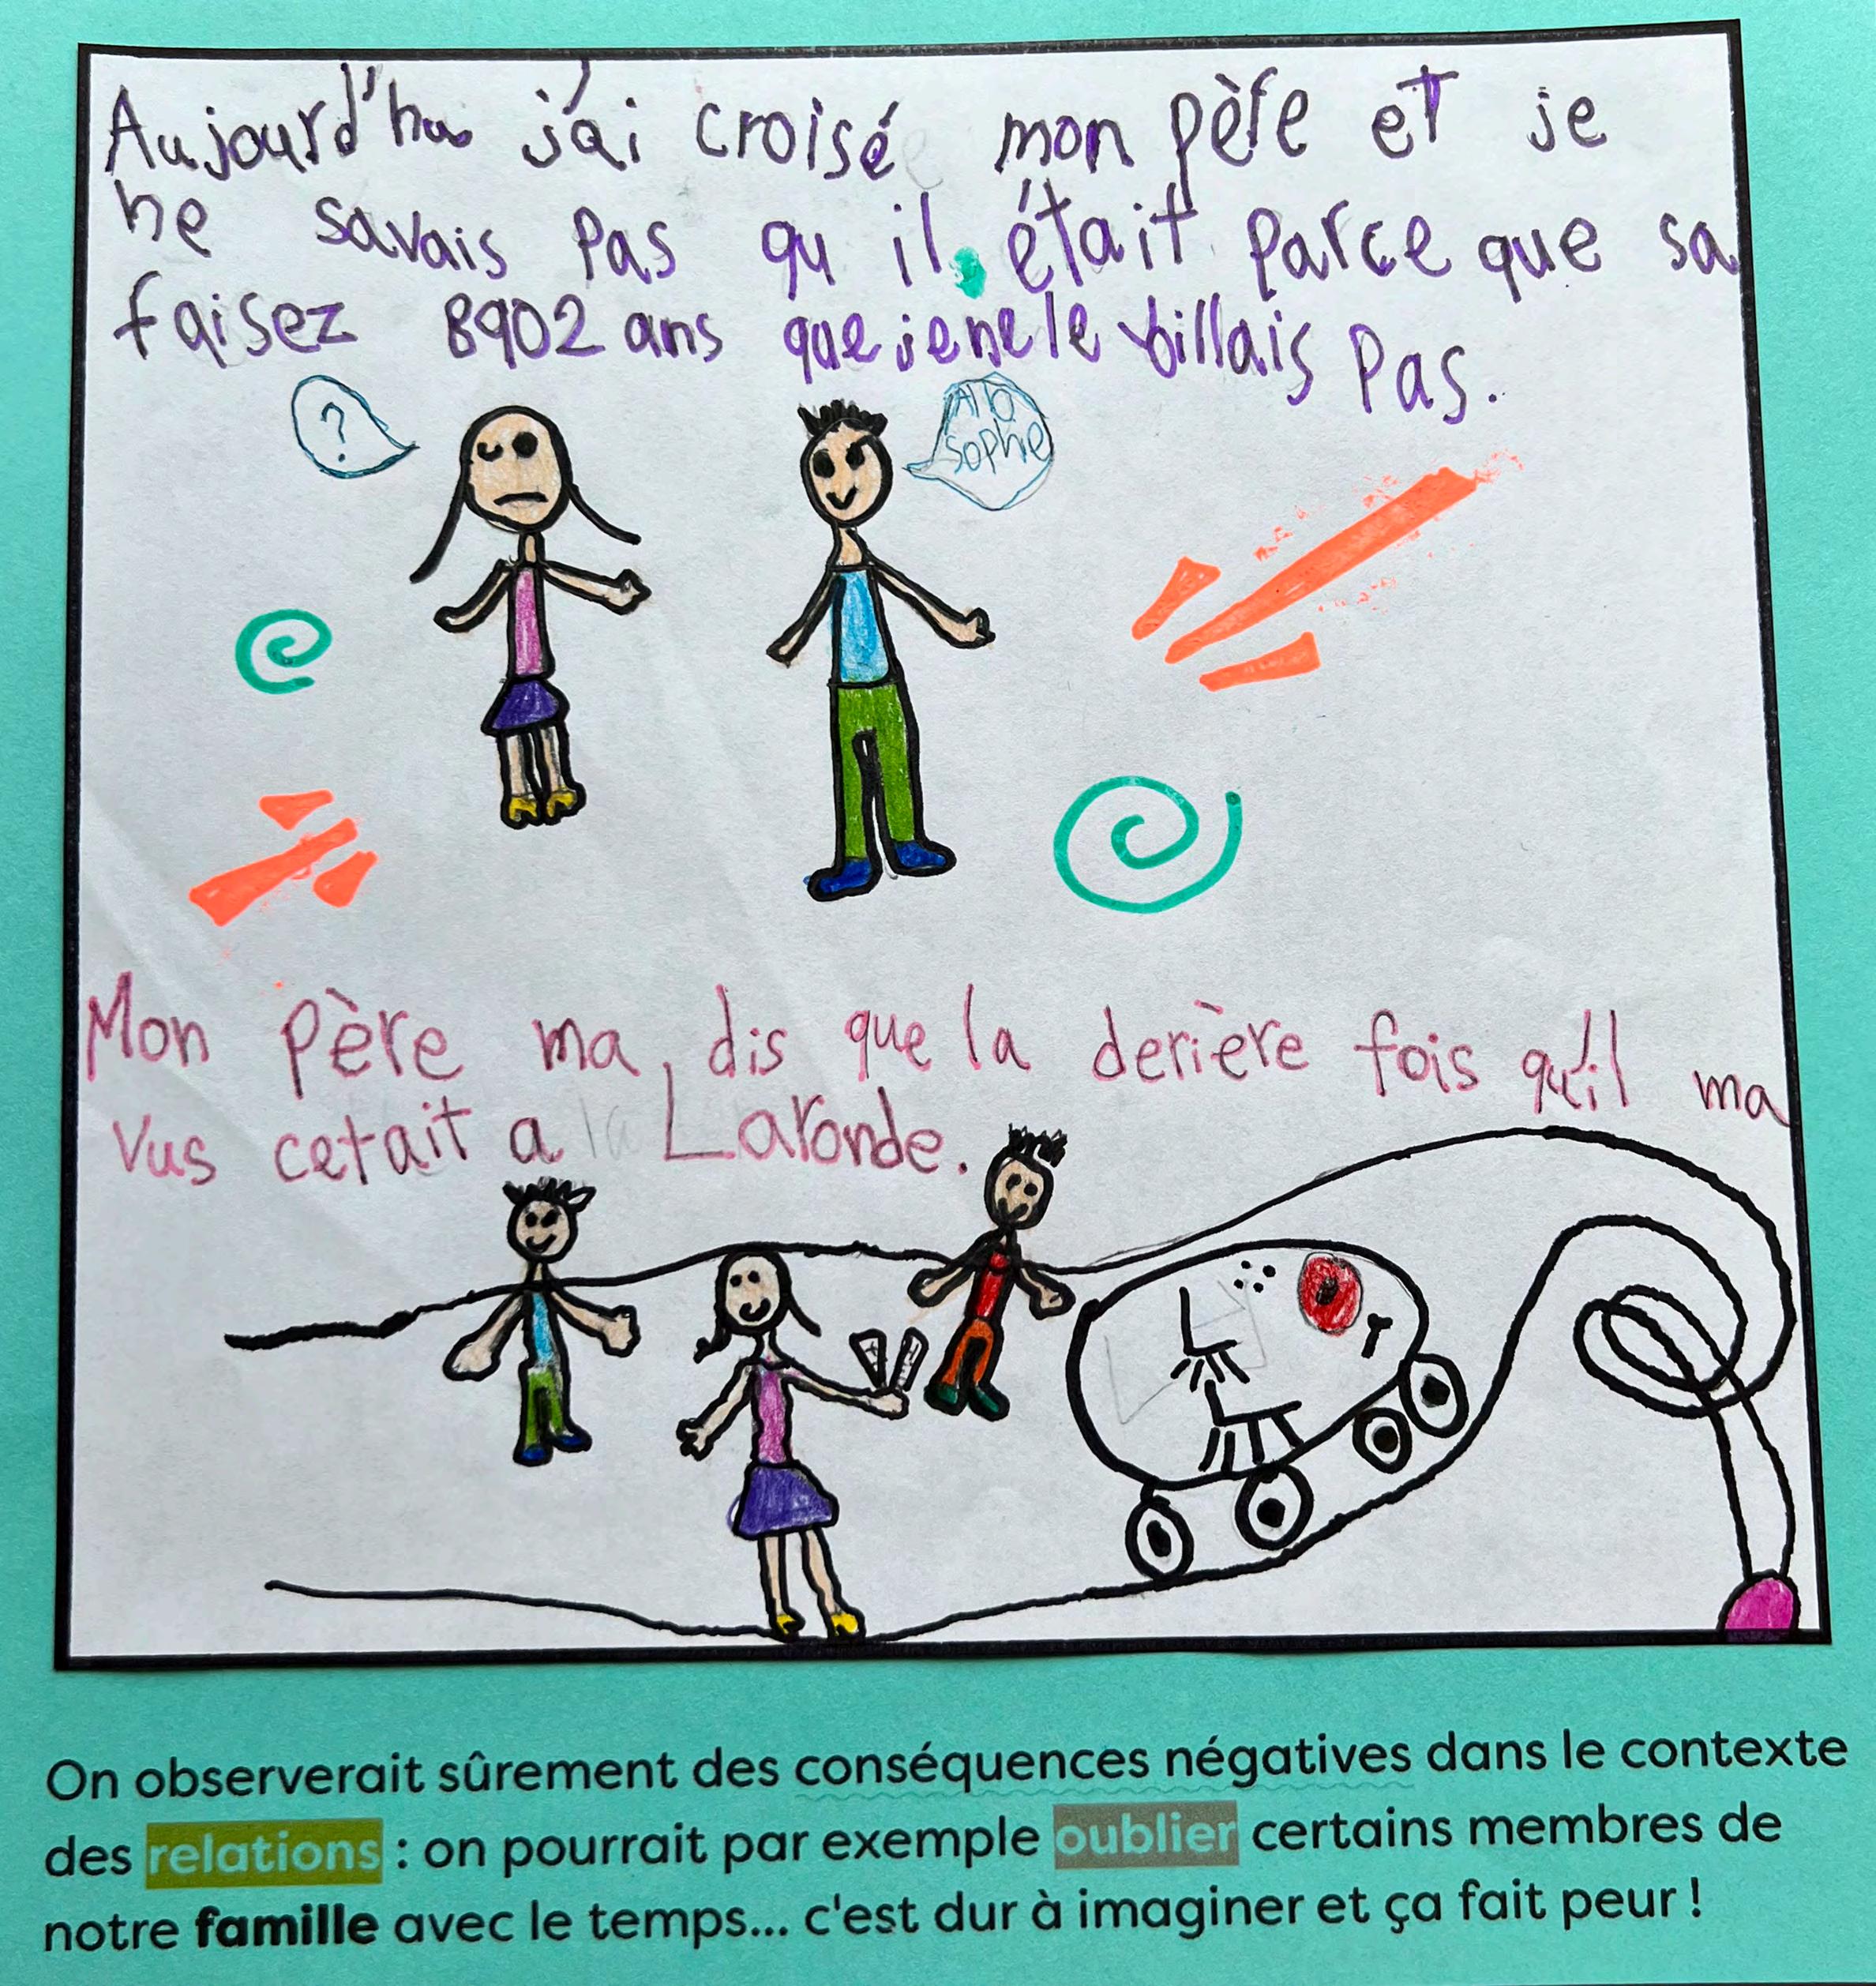 Aujourd'hui j'ai croisé mon père et je
ne savais pas qu il était parce que sa
faisez 8902 ans que je ne le billais pas.
?
Allo
Sophie
Mon père ma dis que la derière fois qu'il ma
vus cetait a Laronde.
On observerait sûrement des conséquences négatives dans le contexte
des relations : on pourrait par exemple oublier certains membres de
notre famille avec le temps... c'est dur à imaginer et ça fait peur !